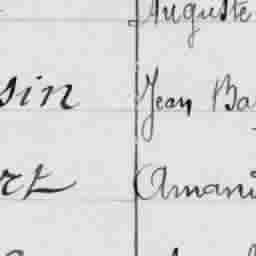 Auguste
sin Jean Ba
rt Amand